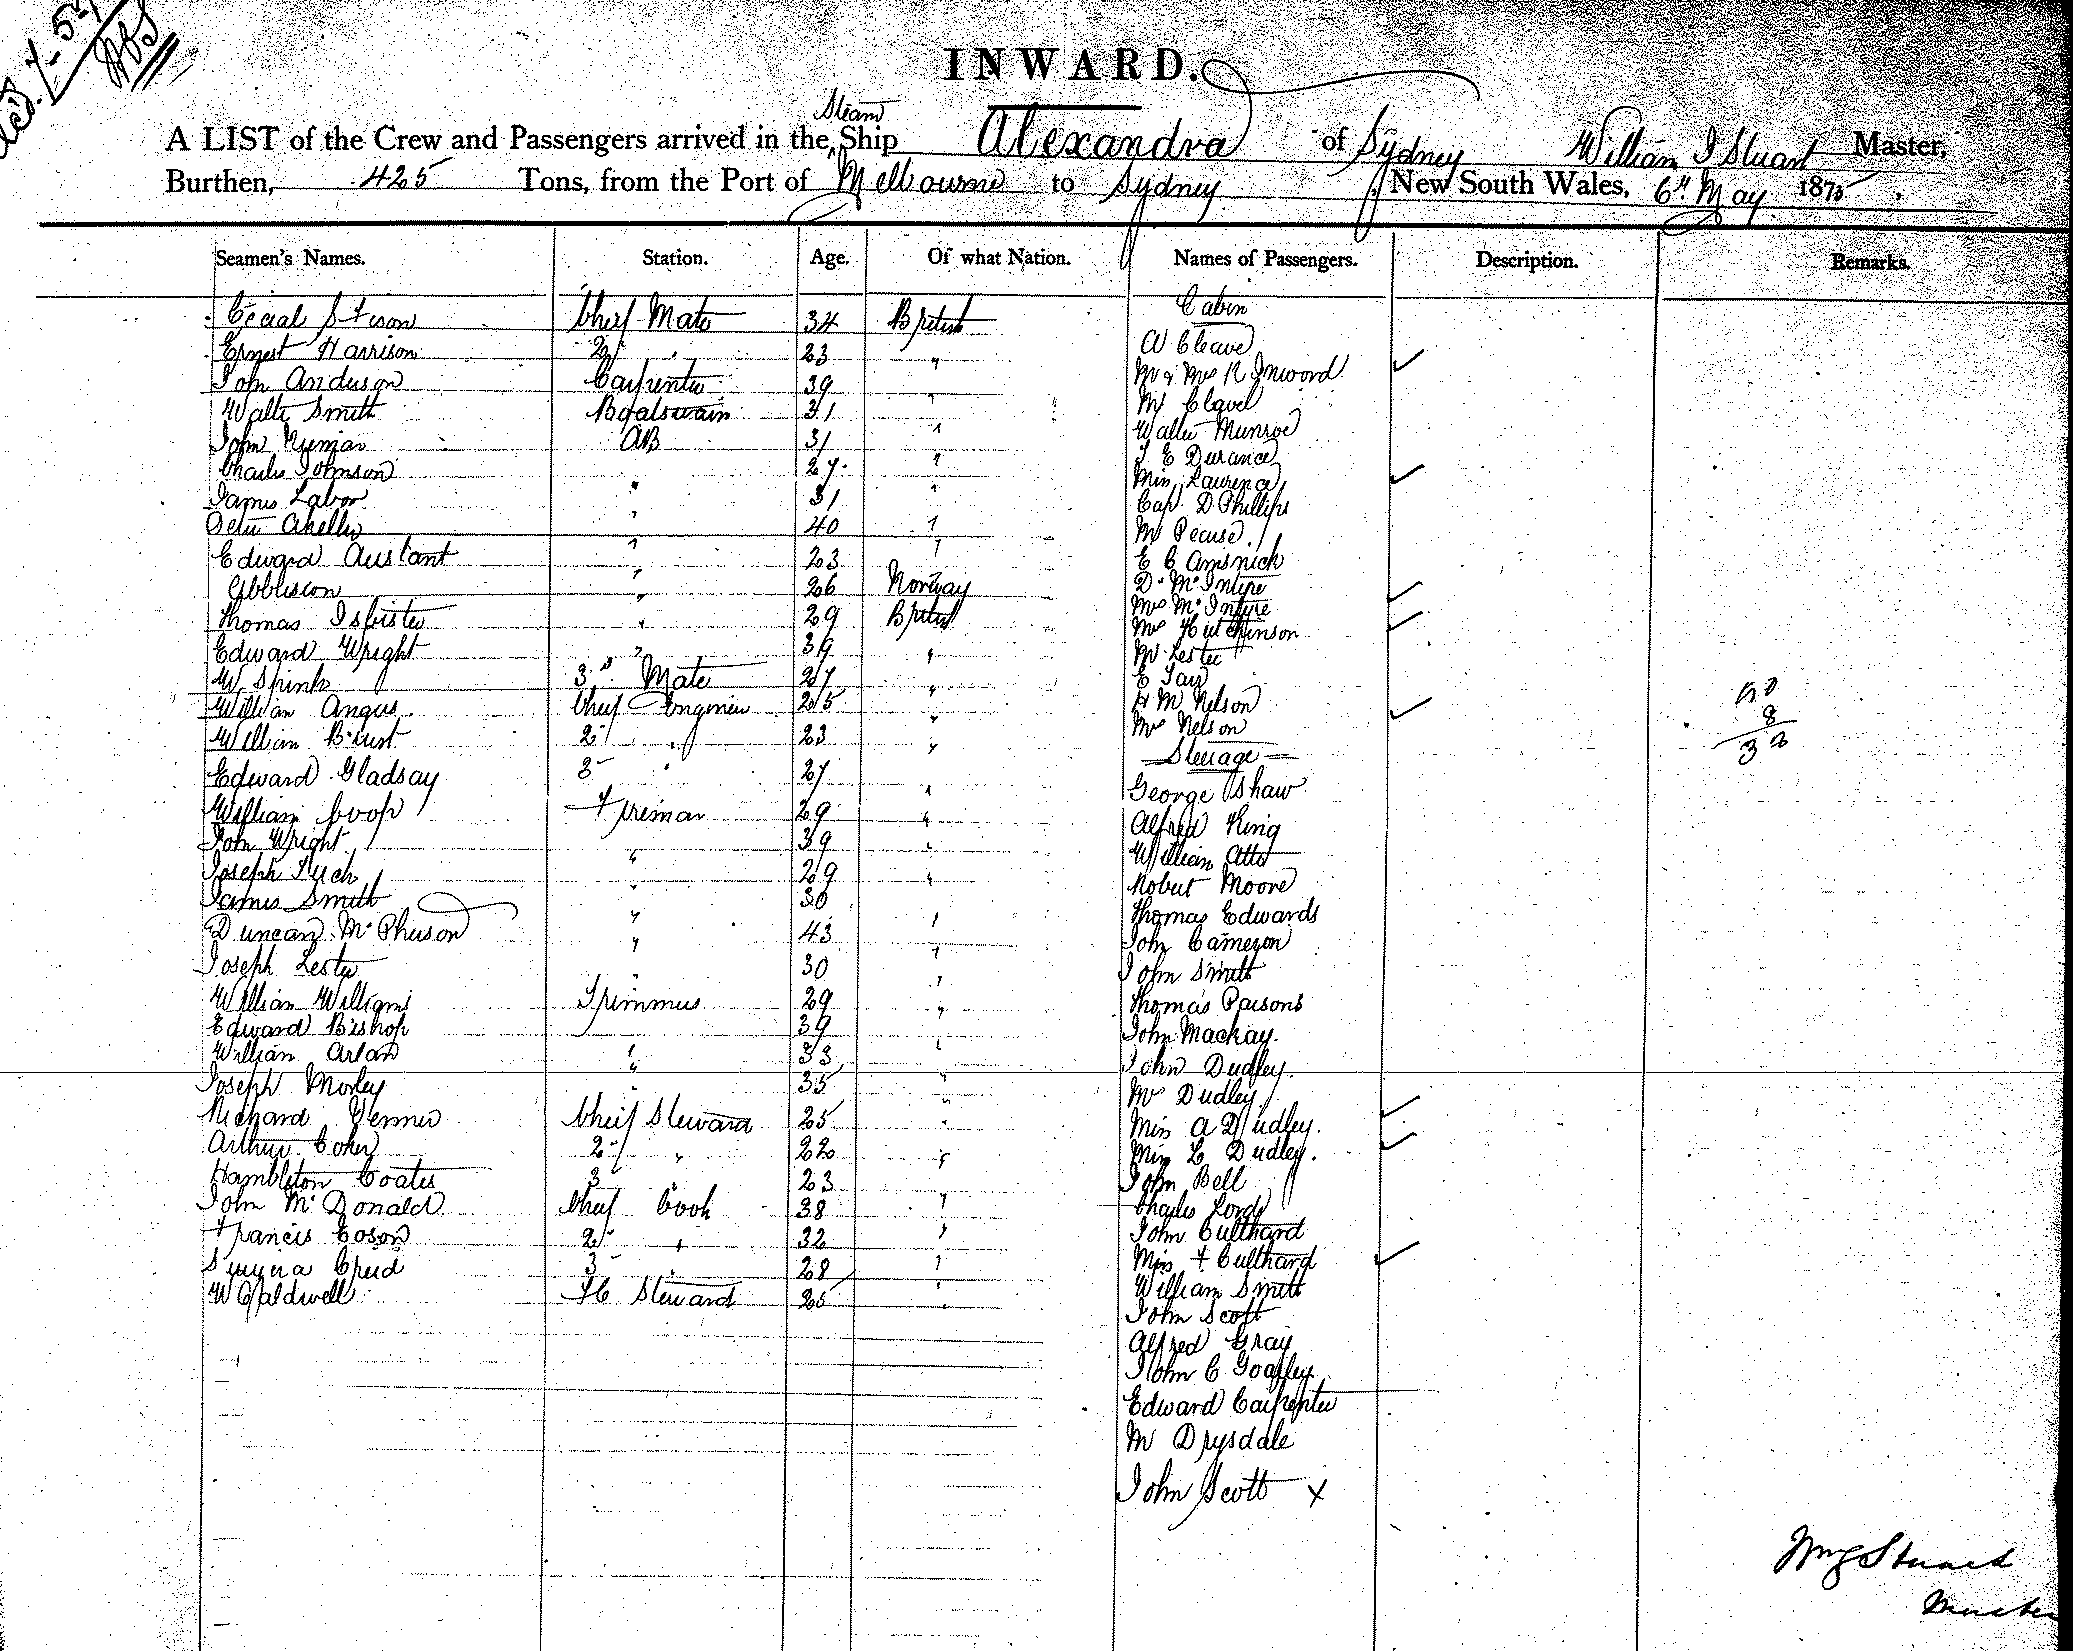 INWARD.
Steam
A LIST of the Crew and Passengers arrived in the Ship Alexandra of Sydney William J Stuart Master,
Burthen, 425 Tons, from the Port of Melbourne to Sydney, New South Wales, 6th May 1875.
Seamen's Names. Station. Age. Of what Nation. Names of Passengers. Description. Remarks.
Cabin
Chief Mate 34 British
Ernest Harrison 2 " 23 " W Cleave
John Anderson Carpenter 39 " Mr & Mrs R Inwood
Walter Smith Boatswain 31 " Mr Clavel
John AB 31 " Walter Munroe
Charles Johnson " 27 " J E Durance
James Labor " 31 " Miss Laurence
40 " Cap. D Phillips
Edward Austant " 23 " Mr Pearse
" 26 Norway E C Amsnich
Thomas Isbister " 29 British D. McIntyre
Edward Wright " 39 " Mrs McIntyre
W Spink 3rd Mate 27 " Mrs Hutchinson
William Angus Chief Engineer 25 " Mr Lester
William 2 " 23 " E Tay
Edward Gladsay 3 " 27 " H M Nelson
William Coop Fireman 29 " Mrs Nelson
John Wright " 39 " Steerage
Joseph " 29 " George Shaw
James Smith " 30 " Alfred King
Duncan McPherson " 43 " William
Joseph Lester " 30 " Robert Moore
William Williams Trimmers 29 " Thomas Edwards
Edward Bishop " 39 " John Cameron
William Arlan " 33 " John Smith
Joseph Morley " 35 " Thomas Parsons
Richard Venner Chief Steward 25 " John Mackay.
Arthur Coker 2 " 22 " John Dudley.
Hambleton Coates 3 " 23 " Mrs Dudley
John McDonald Chief Cook 38 " Miss A Dudley.
Francis 2 " 32 " Miss L Dudley.
3 " 28 " John Bell
W Caldwell FC Steward 25 " Charles Lord
John Culthard
Miss F Culthard
William Smith
John Scott
Alfred Gray
John C Goafley
Edward Carpenter
Mr Drysdale
John Scott X
8
32
Wm J Stuart
Master